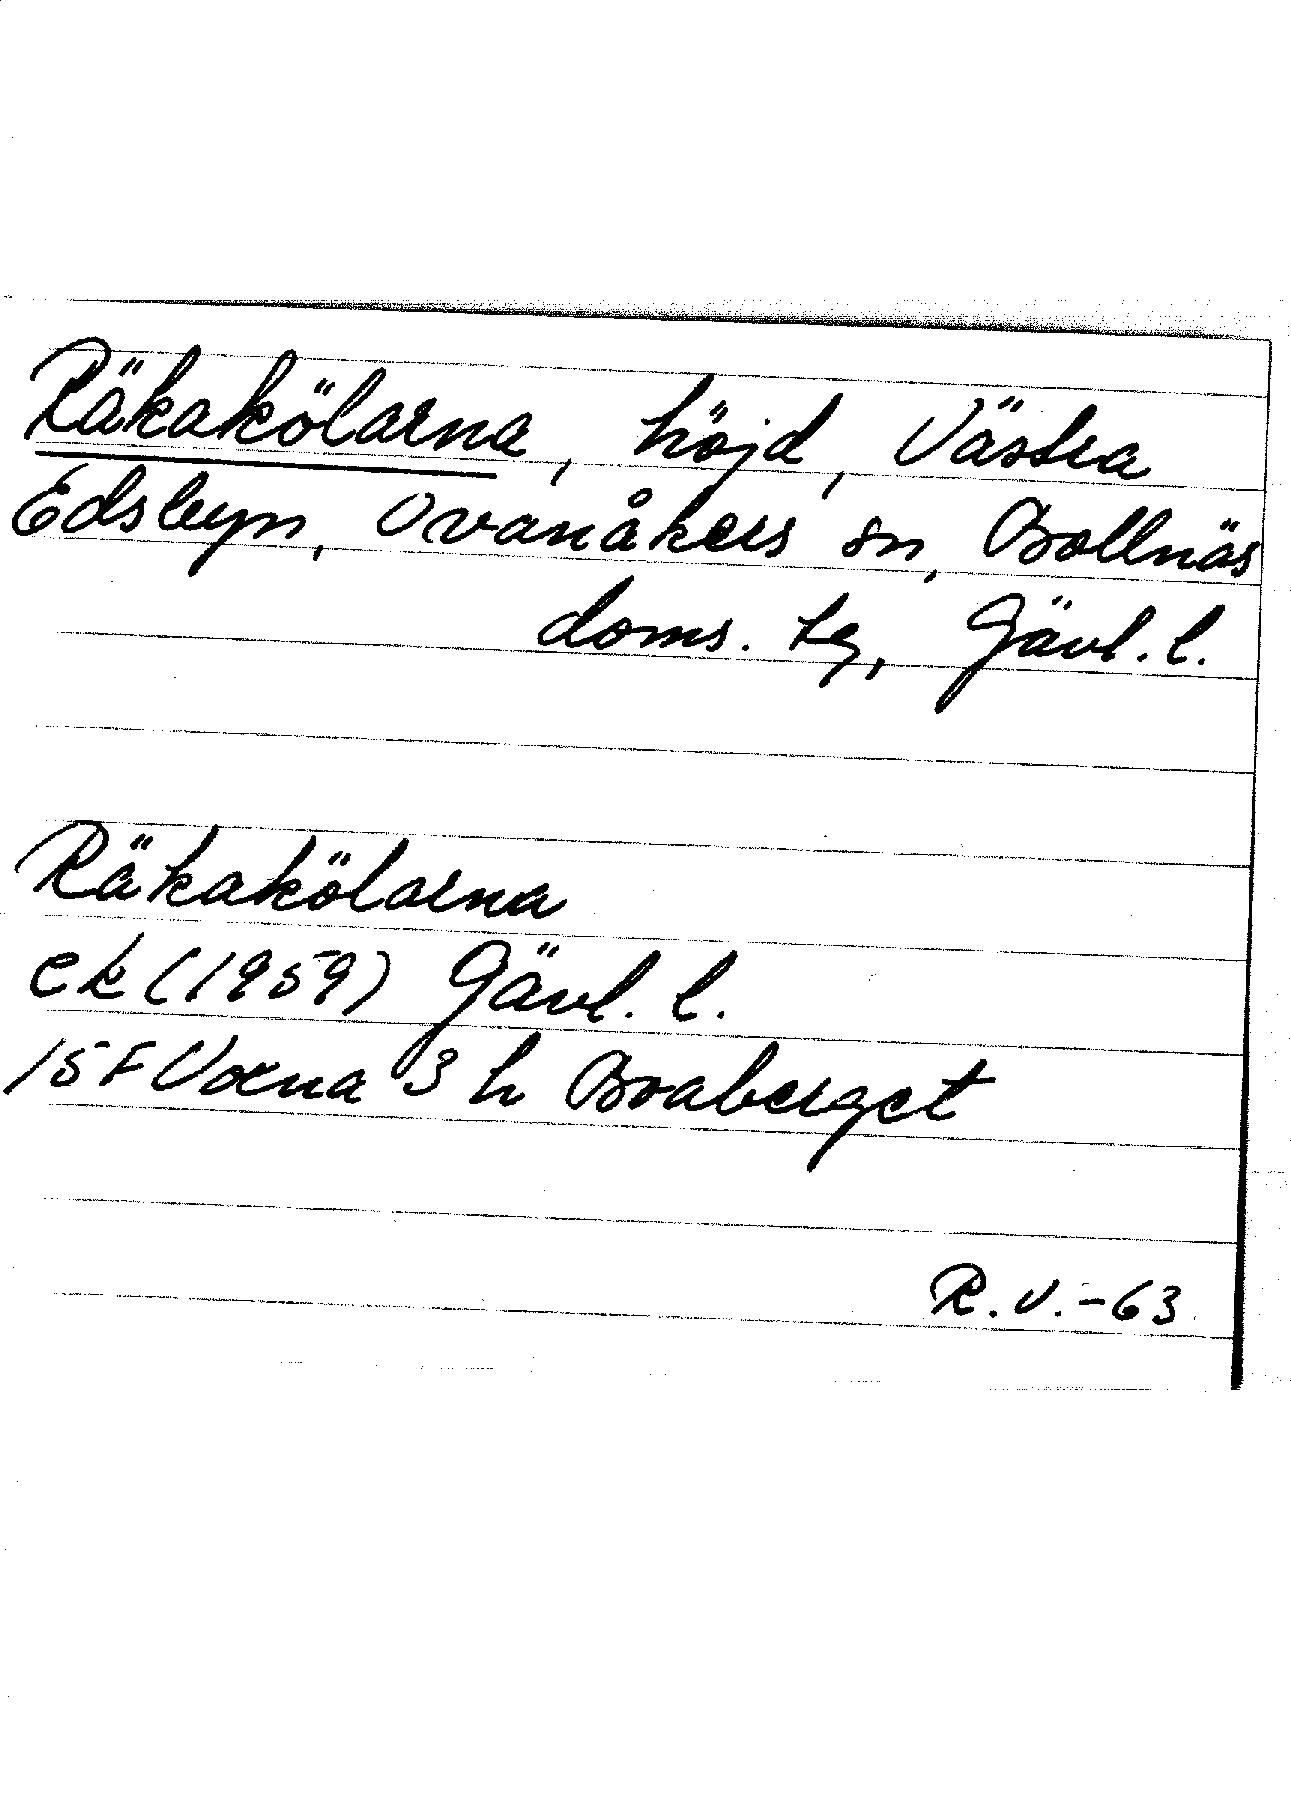 Räkakölarna, höjd, Västra
Edsbyn, Ovanåkers sn, Bollnäs
doms. tg, Gävl. l.
Räkakölarna
ek (1959) Gävl. l.
15 F Voxna 3 h Braberget
R.V.-63